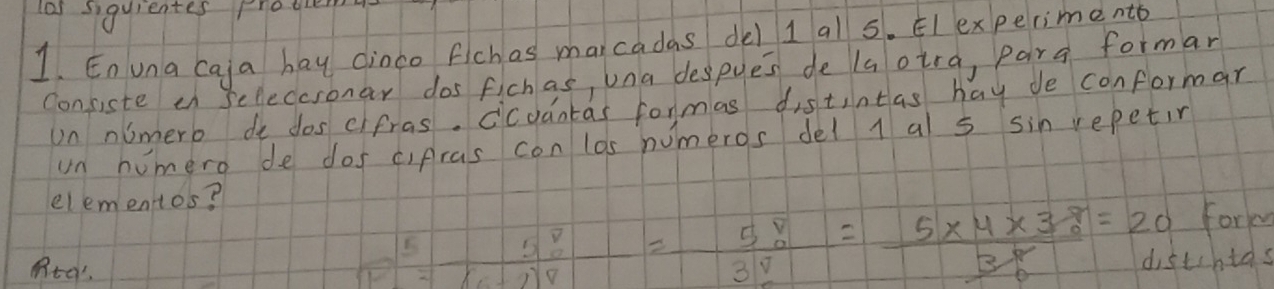 los siguientes problemas
1. En una caja hay cinco fichas marcadas del 1 al 5. El experimento
consiste en seleccionar dos fichas, una después de la otra, para formar
un número de dos cifras. ¿Cuántas formas distintas hay de conformar
un número de dos cifras con los números del 1 al 5 sin repetir
elementos?
= 5! = 5! = 5 x 4 x 3! = 20 formas
Rta. 3! 3! distintas